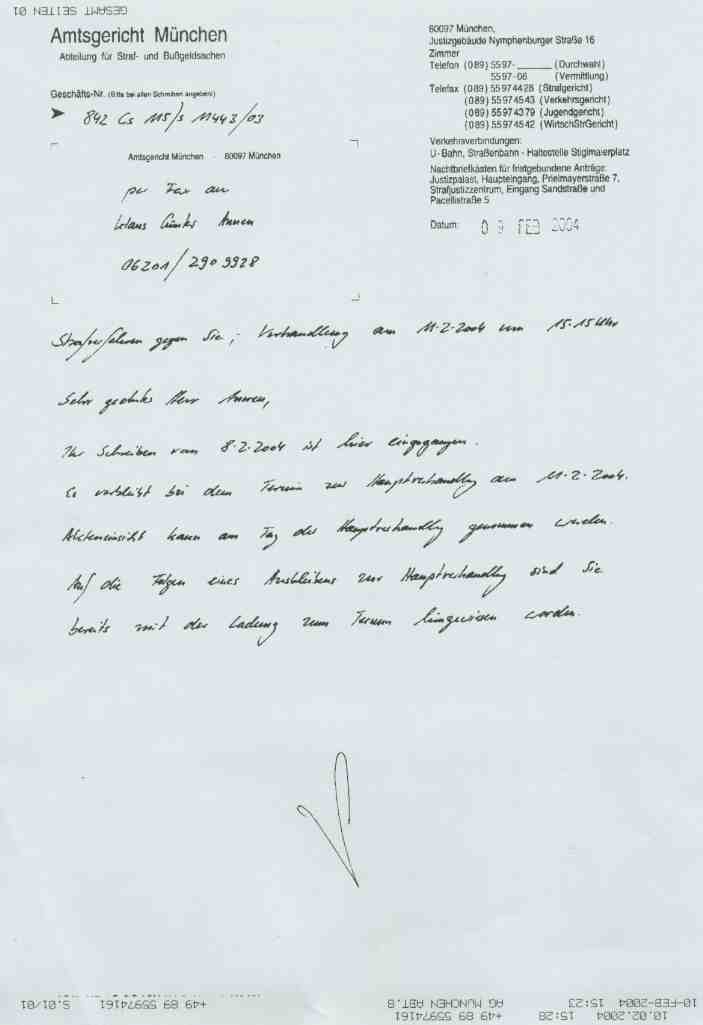 GESAMT SEITEN 01
Amtsgericht München
Abteilung für Straf- und Bußgeldsachen
Geschäfts-Nr. (Bitte bei allen Schreiben angeben!)
842 Cs 115/s 11443/03
Amtsgericht München - 80097 München
per Fax an
Klaus Günter Annen
06201/2909928
80097 München,
Justizgebäude Nymphenburger Straße 16
Zimmer
Telefon (089) 5597-______ (Durchwahl)
5597-06 (Vermittlung)
Telefax (089) 55974428 (Strafgericht)
(089) 55974543 (Verkehrsgericht)
(089) 55974379 (Jugendgericht)
(089) 55974542 (WirtschStrGericht)
Verkehrsverbindungen:
U-Bahn, Straßenbahn - Haltestelle Stiglmaierplatz
Nachtbriefkästen für fristgebundene Anträge:
Justizpalast, Haupteingang, Prielmayerstraße 7,
Strafjustizzentrum, Eingang Sandstraße und
Pacellistraße 5
Datum: 09 FEB 2004
Strafverfahren gegen Sie; Verhandlung am 11.2.2004 um 15.15 Uhr
Sehr geehrter Herr Annen,
Ihr Schreiben vom 8.2.2004 ist hier eingegangen.
Es verbleibt bei dem Termin zur Hauptverhandlung am 11.2.2004.
Akteneinsicht kann am Tag der Hauptverhandlung genommen werden.
Auf die Folgen eines Ausbleibens zur Hauptverhandlung sind Sie
bereits mit der Ladung zum Termin hingewiesen worden.
10-FEB-2004 15:23 AG MUNCHEN ABT.8 +49 89 55974161 S.01/01
10.02.2004 15:28 +49 89 55974161